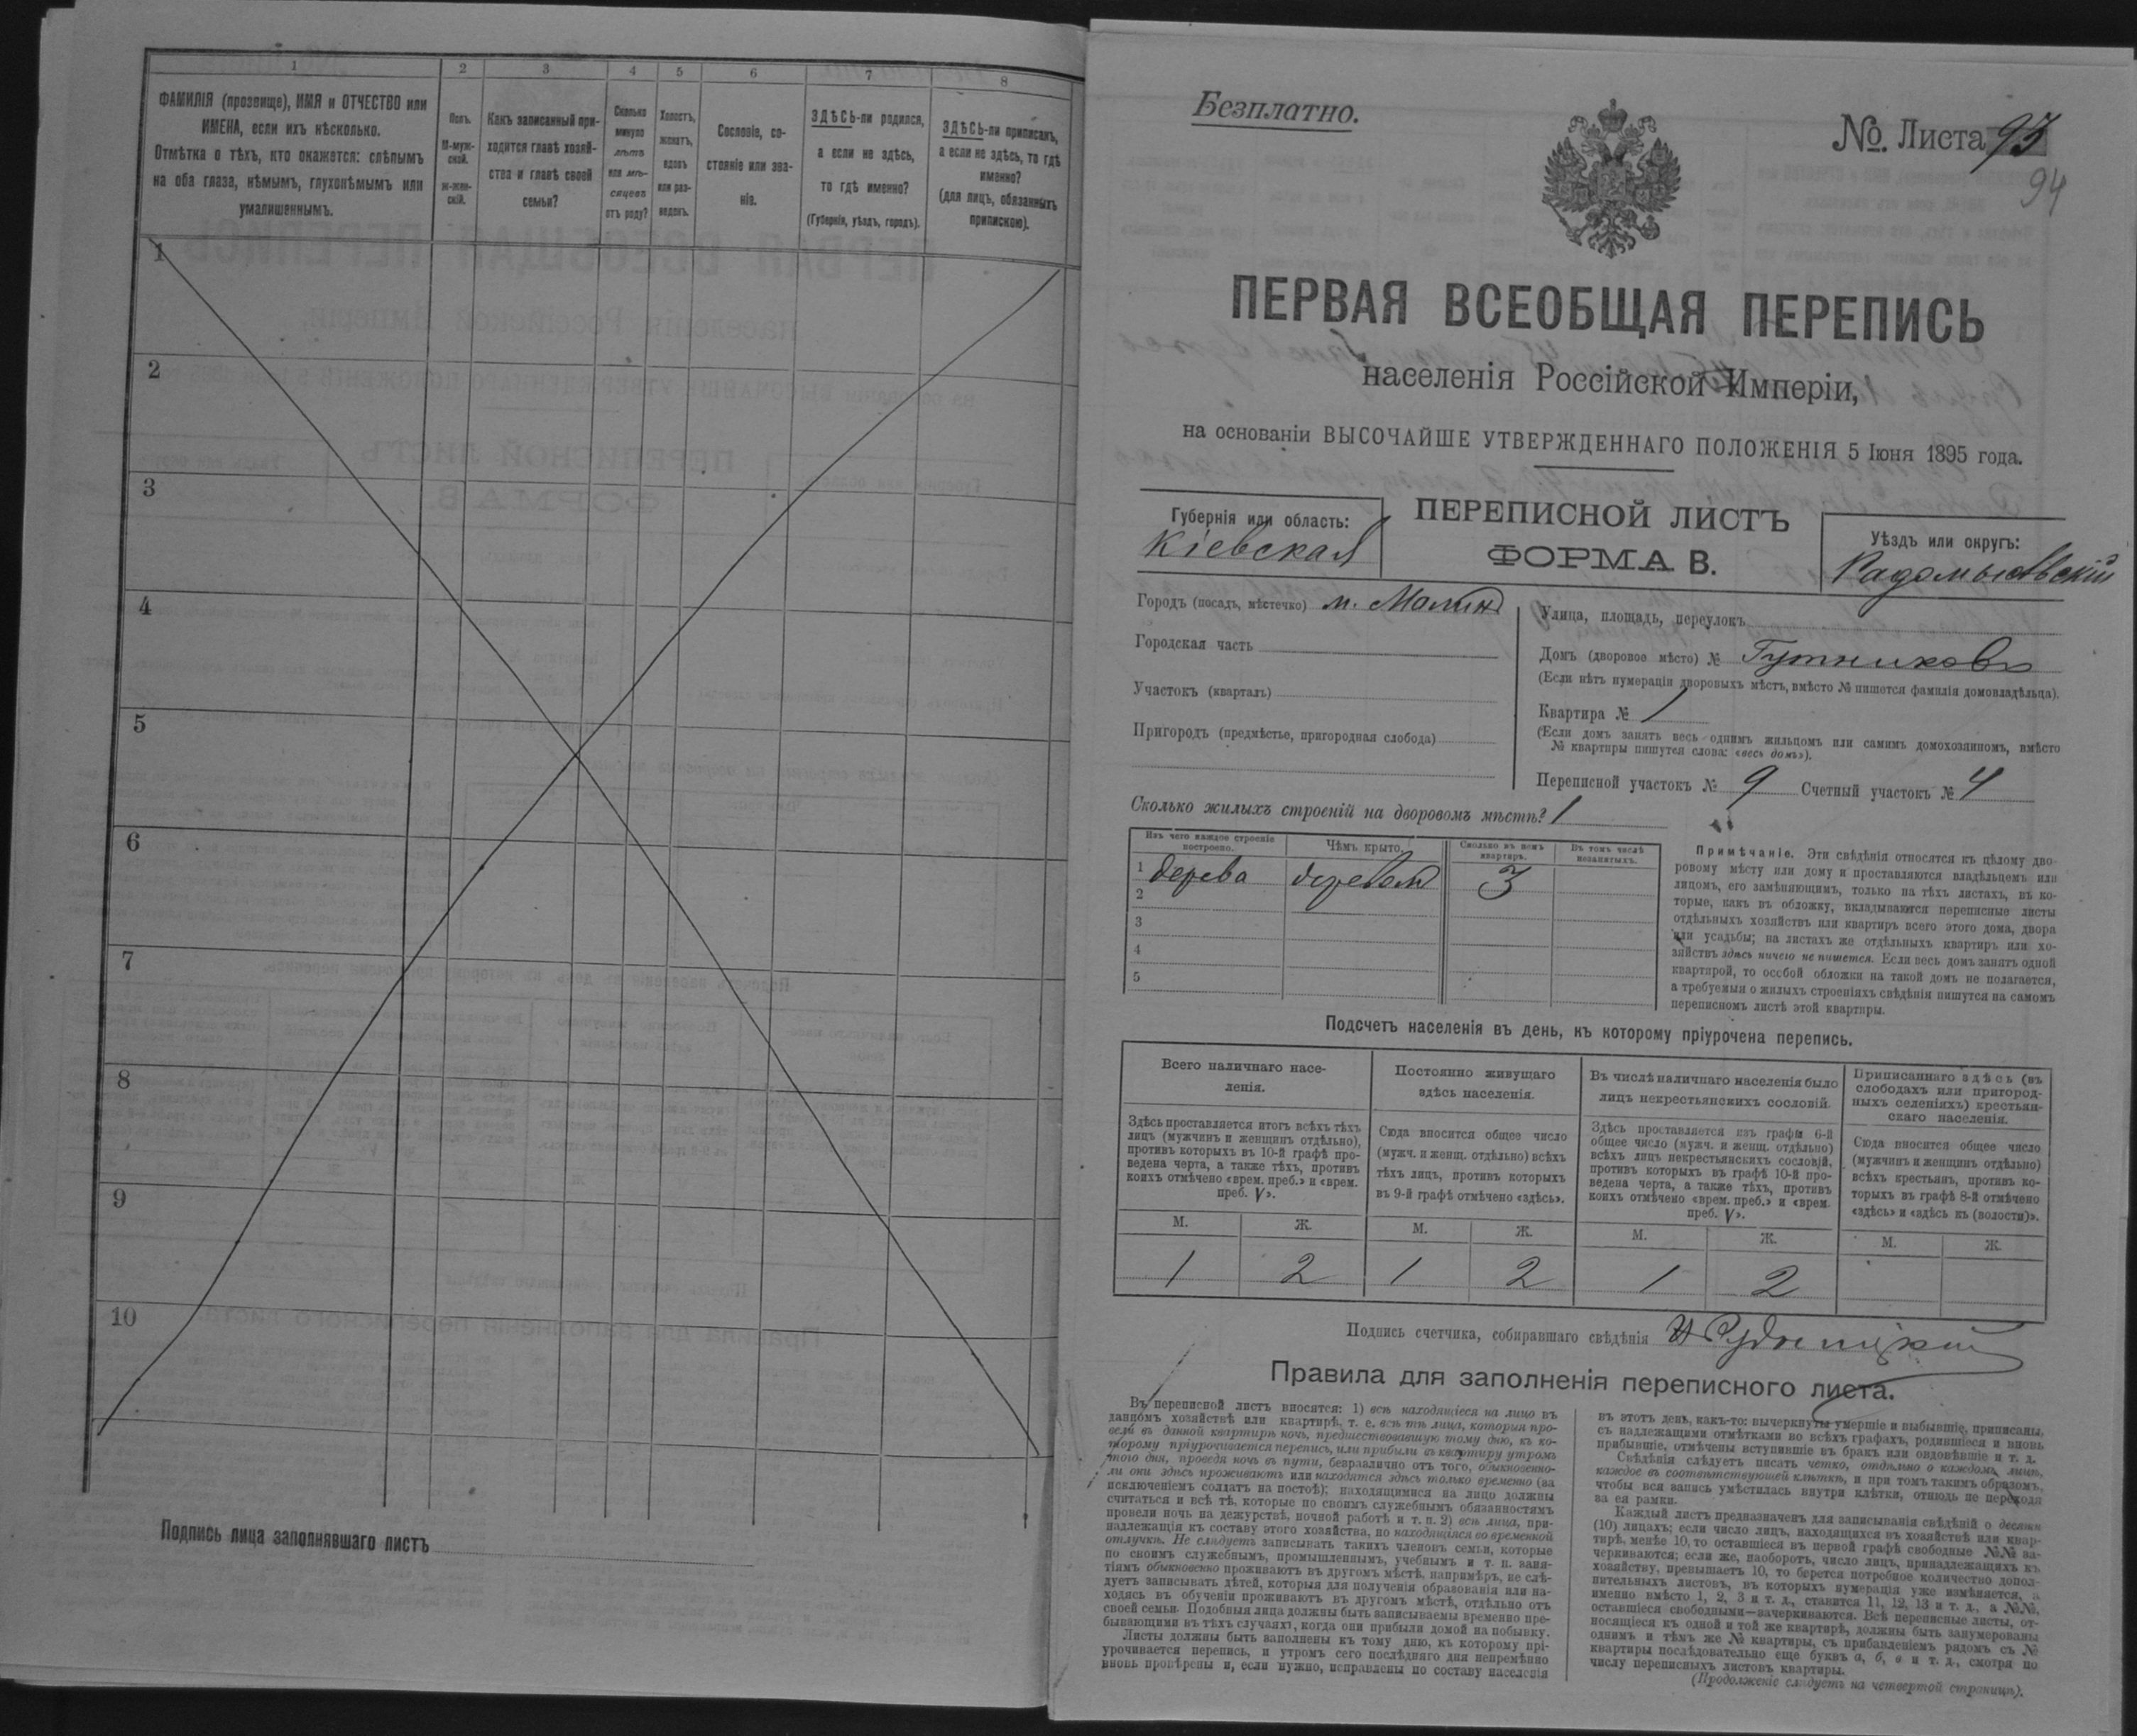 1 2 3 4 5 6 7 8
ФАМИЛІЯ (прозвище), ИМЯ и ОТЧЕСТВО или
ИМЕНА, если ихъ нѣсколько.
Отмѣтка о тѣхъ, кто окажется: слѣпымъ
на оба глаза, нѣмымъ, глухонѣмымъ или
умалишеннымъ.
Полъ.
М-муж-
ской.
ж-жен-
скій.
Какъ записанный при-
ходится главѣ хозяй-
ства и главѣ своей
семьи?
Сколько
минуло
лѣтъ
или мѣ-
сяцевъ
отъ роду?
Холостъ,
женатъ,
вдовъ
или раз-
веденъ.
Сословіе, со-
стояніе или зва-
ніе.
ЗДѢСЬ-ли родился,
а если не здѣсь,
то гдѣ именно?
(Губернія, уѣздъ, городъ).
ЗДѢСЬ-ли приписанъ,
а если не здѣсь, то гдѣ
именно?
(для лицъ, обязанныхъ
припискою).
1
2
3
4
5
6
7
8
9
10
Подпись лица заполнявшаго листъ
Безплатно.
№. Листа 93
94
ПЕРВАЯ ВСЕОБЩАЯ ПЕРЕПИСЬ
населенія Россійской Имперіи,
на основаніи ВЫСОЧАЙШЕ УТВЕРЖДЕННАГО ПОЛОЖЕНІЯ 5 Іюня 1895 года.
Губернія или область:
Кіевская
ПЕРЕПИСНОЙ ЛИСТЪ
ФОРМА В.
Уѣздъ или округъ:
Радомысльскій
Городъ (посадъ, мѣстечко) м. Малинъ
Городская часть
Участокъ (кварталъ)
Пригородъ (предмѣстье, пригородная слобода)
Улица, площадь, переулокъ
Домъ (дворовое мѣсто) № Гутниковъ
(Если нѣтъ нумераціи дворовыхъ мѣстъ, вмѣсто № пишется фамилія домовладѣльца).
Квартира № 1
(Если домъ занятъ весь однимъ жильцомъ или самимъ домохозяиномъ, вмѣсто
№ квартиры пишутся слова: «весь домъ»).
Переписной участокъ № 9 Счетный участокъ № 4
Сколько жилыхъ строеній на дворовомъ мѣстѣ? 1
Изъ чего каждое строеніе
построено.
Чѣмъ крыто.
Сколько въ немъ
квартиръ.
Въ томъ числѣ
незанятыхъ.
1 дерева деревомъ 3
2
3
4
5
Примѣчаніе. Эти свѣдѣнія относятся къ цѣлому дво-
ровому мѣсту или дому и проставляются владѣльцемъ или
лицомъ, его замѣняющимъ, только на тѣхъ листахъ, въ ко-
торые, какъ въ обложку, вкладываются переписные листы
отдѣльныхъ хозяйствъ или квартиръ всего этого дома, двора
или усадьбы; на листахъ же отдѣльныхъ квартиръ или хо-
зяйствъ здѣсь ничего не пишется. Если весь домъ занятъ одной
квартирой, то особой обложки на такой домъ не полагается,
а требуемыя о жилыхъ строеніяхъ свѣдѣнія пишутся на самомъ
переписномъ листѣ этой квартиры.
Подсчетъ населенія въ день, къ которому пріурочена перепись.
Всего наличнаго насе-
ленія.
Здѣсь проставляется итогъ всѣхъ тѣхъ
лицъ (мужчинъ и женщинъ отдѣльно),
противъ которыхъ въ 10-й графѣ про-
ведена черта, а также тѣхъ, противъ
коихъ отмѣчено «врем. преб.» и «врем.
преб. V».
Постоянно живущаго
здѣсь населенія.
Сюда вносится общее число
(мужч. и женщ. отдѣльно) всѣхъ
тѣхъ лицъ, противъ которыхъ
въ 9-й графѣ отмѣчено «здѣсь».
Въ числѣ наличнаго населенія было
лицъ некрестьянскихъ сословій.
Здѣсь проставляется изъ графы 6-й
общее число (мужч. и женщ. отдѣльно)
всѣхъ лицъ некрестьянскихъ сословій,
противъ которыхъ въ графѣ 10-й про-
ведена черта, а также тѣхъ, противъ
коихъ отмѣчено «врем. преб.» и «врем.
преб. V».
Приписаннаго здѣсь (въ
слободахъ или пригород-
ныхъ селеніяхъ) крестьян-
скаго населенія.
Сюда вносится общее число
(мужчинъ и женщинъ отдѣльно)
всѣхъ крестьянъ, противъ ко-
торыхъ въ графѣ 8-й отмѣчено
«здѣсь» и «здѣсь къ (волости)».
М. Ж. М. Ж. М. Ж. М. Ж.
1 2 1 2 1 2
Подпись счетчика, собиравшаго свѣдѣнія
Правила для заполненія переписного листа.
Въ переписной листъ вносятся: 1) всѣ находящіеся на лицо въ
данномъ хозяйствѣ или квартирѣ, т. е. всѣ тѣ лица, которыя про-
вели въ данной квартирѣ ночь, предшествовавшую тому дню, къ ко-
торому пріурочивается перепись, или прибыли въ квартиру утромъ
того дня, проведя ночь въ пути, безразлично отъ того, обыкновенно-
ли они здѣсь проживаютъ или находятся здѣсь только временно (за
исключеніемъ солдатъ на постоѣ); находящимися на лицо должны
считаться и всѣ тѣ, которые по своимъ служебнымъ обязанностямъ
провели ночь на дежурствѣ, ночной работѣ и т. п. 2) всѣ лица, при-
надлежащія къ составу этого хозяйства, но находящіяся во временной
отлучкѣ. Не слѣдуетъ записывать такихъ членовъ семьи, которые
по своимъ служебнымъ, промышленнымъ, учебнымъ и т. п. заня-
тіямъ обыкновенно проживаютъ въ другомъ мѣстѣ, напримѣръ, не слѣ-
дуетъ записывать дѣтей, которыя для полученія образованія или на-
ходясь въ обученіи проживаютъ въ другомъ мѣстѣ, отдѣльно отъ
своей семьи. Подобныя лица должны быть записываемы временно пре-
бывающими въ тѣхъ случаяхъ, когда они прибыли домой на побывку.
Листы должны быть заполнены къ тому дню, къ которому прі-
урочивается перепись, и утромъ сего послѣдняго дня непремѣнно
вновь провѣрены и, если нужно, исправлены по составу населенія
въ этотъ день, какъ-то: вычеркнуты умершіе и выбывшіе, приписаны,
съ надлежащими отмѣтками во всѣхъ графахъ, родившіеся и вновь
прибывшіе, отмѣчены вступившіе въ бракъ или овдовѣвшіе и т. д.
Свѣдѣнія слѣдуетъ писать четко, отдѣльно о каждомъ лицѣ,
каждое въ соотвѣтствующей клѣткѣ, и при томъ такимъ образомъ,
чтобы вся запись умѣстилась внутри клѣтки, отнюдь не переходя
за ея рамки.
Каждый листъ предназначенъ для записыванія свѣдѣній о десяти
(10) лицахъ; если число лицъ, находящихся въ хозяйствѣ или квар-
тирѣ, менѣе 10, то оставшіеся въ первой графѣ свободные №№ за-
черкиваются; если же, наоборотъ, число лицъ, принадлежащихъ къ
хозяйству, превышаетъ 10, то берется потребное количество допол-
нительныхъ листовъ, въ которыхъ нумерація уже измѣняется, а
именно вмѣсто 1, 2, 3 и т. д., ставится 11, 12, 13 и т. д., а №№,
оставшіеся свободными—зачеркиваются. Всѣ переписные листы, от-
носящіеся къ одной и той же квартирѣ, должны быть занумерованы
однимъ и тѣмъ же № квартиры, съ прибавленіемъ рядомъ съ №
квартиры послѣдовательно еще буквъ а, б, в и т. д., смотря по
числу переписныхъ листовъ квартиры.
(Продолженіе слѣдуетъ на четвертой страницѣ).